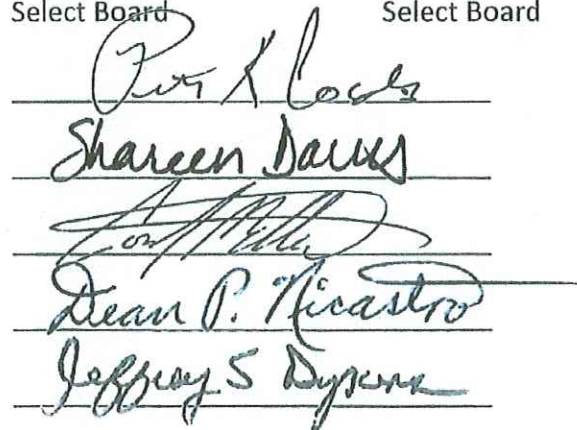 Select Board Select Board
Peter K Cocolis
Shareen Davis
Dean P. Nicastro
Jeffrey S Dykens